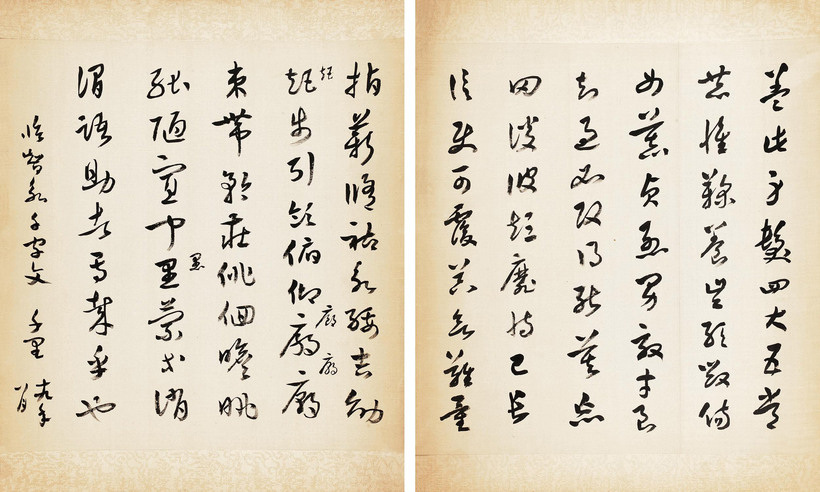 蓋此身髮四大五常
恭惟鞠養豈敢毀傷
女慕貞絜男效才良
知過必改得能莫忘
罔談彼短靡恃己長
信使可覆器欲難量
指薪脩祜永綏吉劭
矩步引領俯仰廊廟
矩
廊
廟
束帶矜莊俳佪瞻眺
孤陋寡聞愚蒙等誚
愚
謂語助者焉哉乎也
臨智永千字文 千里